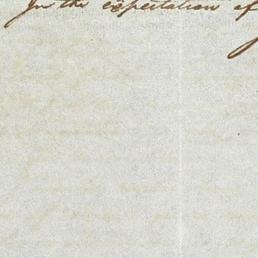 In the expectation of